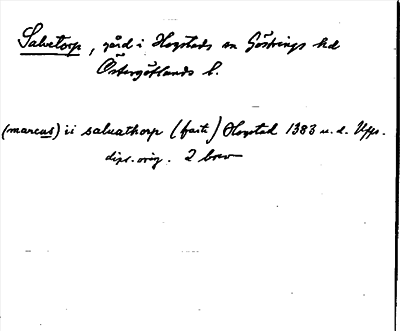 Salvetorp, gård i Hogstads sn Göstrings hd
Östergötlands l.
(marcus) ii saluathorp (fasti) Hogstad 1383 u.d. Upps.
dipl. orig. 2 brev